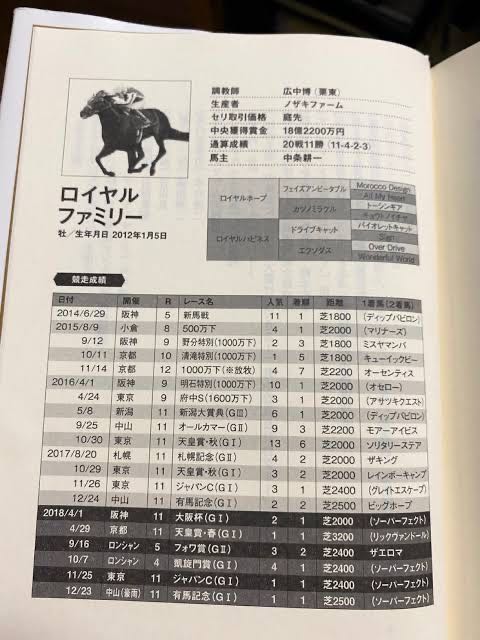 調教師 広中博(栗東)
生産者 ノザキファーム
セリ取引価格 庭先
中央獲得賞金 18億2200万円
通算成績 20戦11勝(11-4-2-3)
馬主 中条耕一
ロイヤル
ファミリー
牡/生年月日 2012年1月5日
ロイヤルホープ フェイズアンビータブル Morocco Design
All My Heart
カツノミラクル トーシンギア
チョウトノイチャ
ロイヤルハピネス ドライブキャット バイオレットキャット
エワソダス Over Drive
Wonderful World
競走成績
日付 開催 R レース名 人気 着順 距離 1着馬(2着馬)
2014/6/29 阪神 5 新馬戦 11 1 芝1800 (ディップバビロン)
2015/8/9 小倉 8 500万下 4 1 芝2000 (マリナーズ)
9/12 阪神 9 野分特別(1000万下) 2 3 芝1800 ミスヤマンバ
10/11 京都 10 清滝特別(1000万下) 1 5 芝1800 キューイックビー
11/14 京都 12 1000万下(※放牧) 4 7 芝2200 オーセンティス
2016/4/1 阪神 9 明石特別(1000万下) 10 1 芝2000 (オセロー)
4/24 東京 9 府中S(1600万下) 3 1 芝2000 (アサツキクエスト)
5/8 新潟 11 新潟大賞典(GⅢ) 6 1 芝2000 (ディップバビロン)
9/25 中山 11 オールカマー(GⅡ) 9 3 芝2200 モアーアイビス
10/30 東京 11 天皇賞・秋(GⅠ) 13 6 芝2000 ソリタリーステア
2017/8/20 札幌 11 札幌記念(GⅡ) 4 2 芝2000 ザキング
10/29 東京 11 天皇賞・秋(GⅠ) 3 2 芝2000 レインボーキャンプ
11/26 東京 11 ジャパンC(GⅠ) 2 1 芝2400 (グレイトエスケープ)
12/24 中山 11 有馬記念(GⅠ) 2 2 芝2500 ビッグホープ
2018/4/1 阪神 11 大阪杯(GⅠ) 2 1 芝2000 (ソーパーフェクト)
4/29 京都 11 天皇賞・春(GⅠ) 1 1 芝3200 (リックヴァンドール)
9/16 ロンシャン 5 フォワ賞(GⅡ) 3 2 芝2400 ザエロマ
10/7 ロンシャン 4 凱旋門賞(GⅠ) 4 1 芝2400 (ソーパーフェクト)
11/25 東京 11 ジャパンC(GⅠ) 1 1 芝2400 (ソーパーフェクト)
12/23 中山(豪雨) 11 有馬記念(GⅠ) 1 1 芝2500 (ソーパーフェクト)